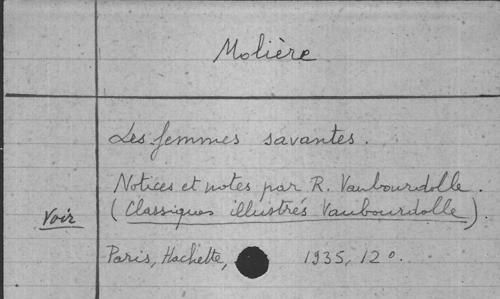 Molière
Les femmes savantes.
Notices et notes par R. Vaubourdolle.
Voir (Classiques illustrés Vaubourdolle).
Paris, Hachette, 1935, 12°.